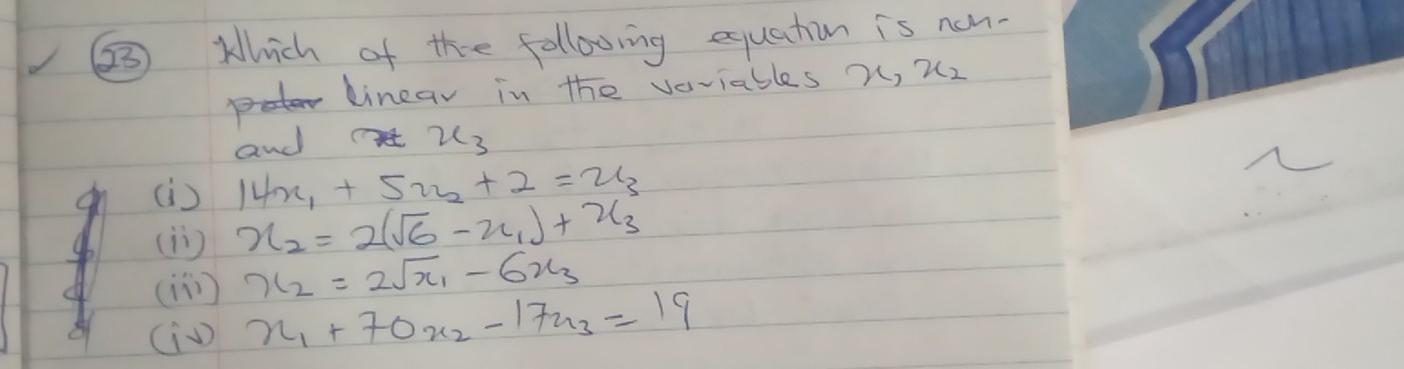 23 Which of the following equation is non-
linear in the variables x, x₂
and x₃
(i) 14x₁ + 5x₂ + 2 = x₃
(ii) x₂ = 2(√6 - x₁) + x₃
(iii) x₂ = 2√x₁ - 6x₃
(iv) x₁ + 70x₂ - 17x₃ = 19